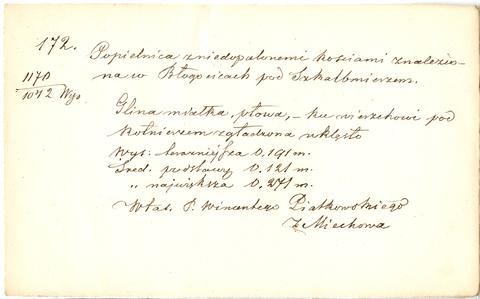 172.
Popielnica z niedopalonemi kościami znalezio-
na w Błogocicach pod Szkalbmierzem.
1170
1042 Wys
Glina miałka, płowa, – ku wierzchowi pod
kołnierzem zgładzona wklęsło
Wys: 0.191 m.
Śred. podstawy 0.121 m.
„ największa 0.271 m.
Włas. P. Wincentego Piatkowskiego
Z Miechowa